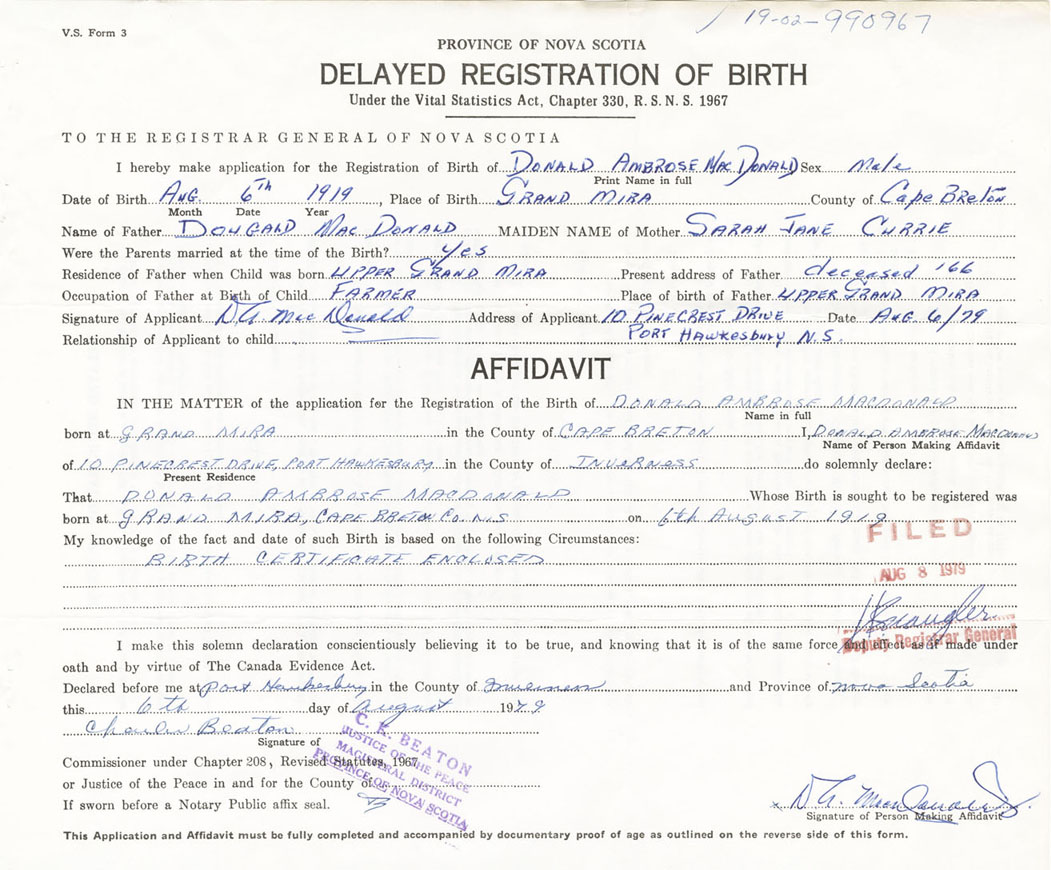 19-02-990967
V.S. Form 3
PROVINCE OF NOVA SCOTIA
DELAYED REGISTRATION OF BIRTH
Under the Vital Statistics Act, Chapter 330, R. S. N. S. 1967
TO THE REGISTRAR GENERAL OF NOVA SCOTIA
I hereby make application for the Registration of Birth of DONALD AMBROSE MAC DONALD Sex Male
Print Name in full
Date of Birth AUG. 6th 1919, Place of Birth GRAND MIRA County of Cape Breton
Month Date Year
Name of Father DOUGALD MAC DONALD MAIDEN NAME of Mother SARAH JANE CURRIE
Were the Parents married at the time of the Birth? Yes
Residence of Father when Child was born UPPER GRAND MIRA Present address of Father deceased '66
Occupation of Father at Birth of Child FARMER Place of birth of Father UPPER GRAND MIRA
Signature of Applicant D.A. MacDonald Address of Applicant 10 PINECREST DRIVE Date AUG 6/79
Relationship of Applicant to child PORT HAWKESBURY N.S.
AFFIDAVIT
IN THE MATTER of the application for the Registration of the Birth of DONALD AMBROSE MACDONALD
Name in full
born at GRAND MIRA in the County of CAPE BRETON I, DONALD AMBROSE MACDONALD
Name of Person Making Affidavit
of 10 PINECREST DRIVE, PORT HAWKESBURY in the County of INVERNESS do solemnly declare:
Present Residence
That DONALD AMBROSE MACDONALD Whose Birth is sought to be registered was
born at GRAND MIRA, CAPE BRETON CO. N.S on 6th AUGUST 1919
FILED
My knowledge of the fact and date of such Birth is based on the following Circumstances:
BIRTH CERTIFICATE ENCLOSED
AUG 8 1979
Deputy Registrar General
I make this solemn declaration conscientiously believing it to be true, and knowing that it is of the same force and effect as if made under
oath and by virtue of The Canada Evidence Act.
Declared before me at Port Hawkesbury in the County of Inverness and Province of Nova Scotia
this 6th day of August 1979
Charles Beaton
Signature of
C. K. BEATON
JUSTICE OF THE PEACE
MAGISTERIAL DISTRICT
PROVINCE OF NOVA SCOTIA
Commissioner under Chapter 208, Revised Statutes, 1967
or Justice of the Peace in and for the County of
If sworn before a Notary Public affix seal.
x D.A. MacDonald
Signature of Person Making Affidavit
This Application and Affidavit must be fully completed and accompanied by documentary proof of age as outlined on the reverse side of this form.